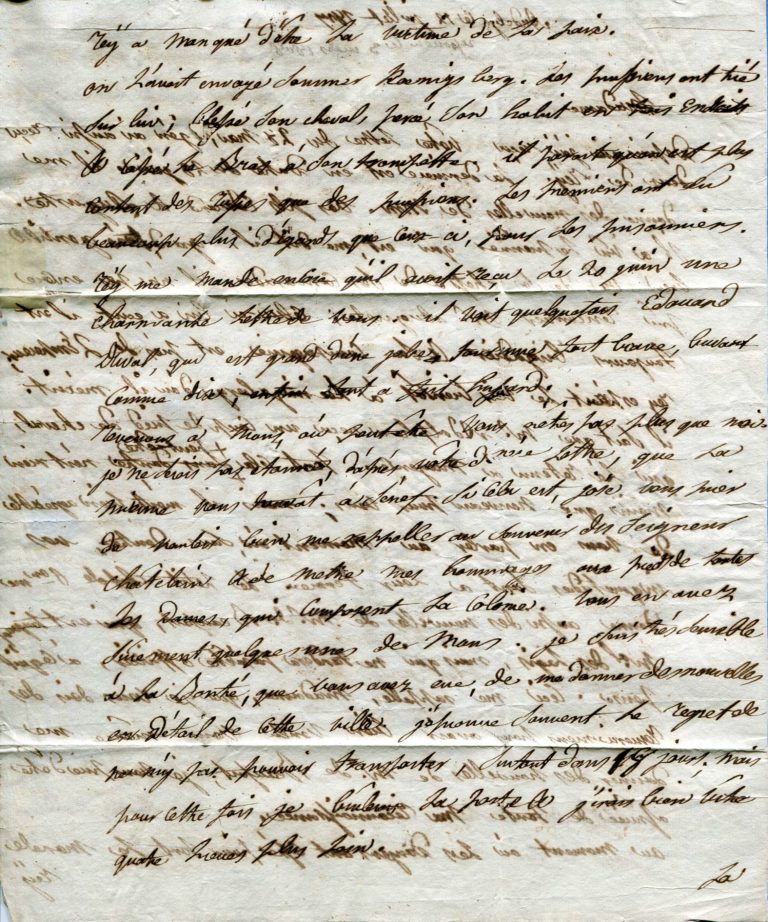 rëy a manqué d'être la victime de la paix.
on l'avoit envoyé sommer Kœnigsberg. Les prussiens ont tiré
sur lui; blessé son cheval, percé son habit en trois endroits
& cassé le bras à son trompette. il paroit qu'on est plus
content des russes que des prussiens. Les premiers ont eu
beaucoup plus d'égards que ceux ci, pour les prisonniers.
rëy me mande encore qu'il avoit reçu le 20 juin une
charmante lettre de vous. il voit quelquefois Edouard
duval, qui est grand d'une jolie tournure fort brave, buvant
comme dix, enfin tout à fait housard.
revenons à Mons, où peut être vous n'êtes pas plus que moi.
je ne serois pas étonné, d'après votre dernière lettre, que la
présente vous trouvât à Sénef. Si cela est, j'ose vous prier
de vouloir bien me rappeller au souvenir des Seigneur
chatelain & de mettre mes hommages aux pieds de toutes
les Dames, qui composent la Colonie. Vous en avez
surement quelques unes de Mons. je suis très sensible
à la Bonté, que vous avez eue, de me donner des nouvelles
en détail de cette ville. j'éprouve souvent le regret de
ne m'y pas pouvoir transporter, surtout dans 15 jours. mais
pour cette fois je brulerois la poste & j'irois bien vite
quatre lieues plus loin.
la